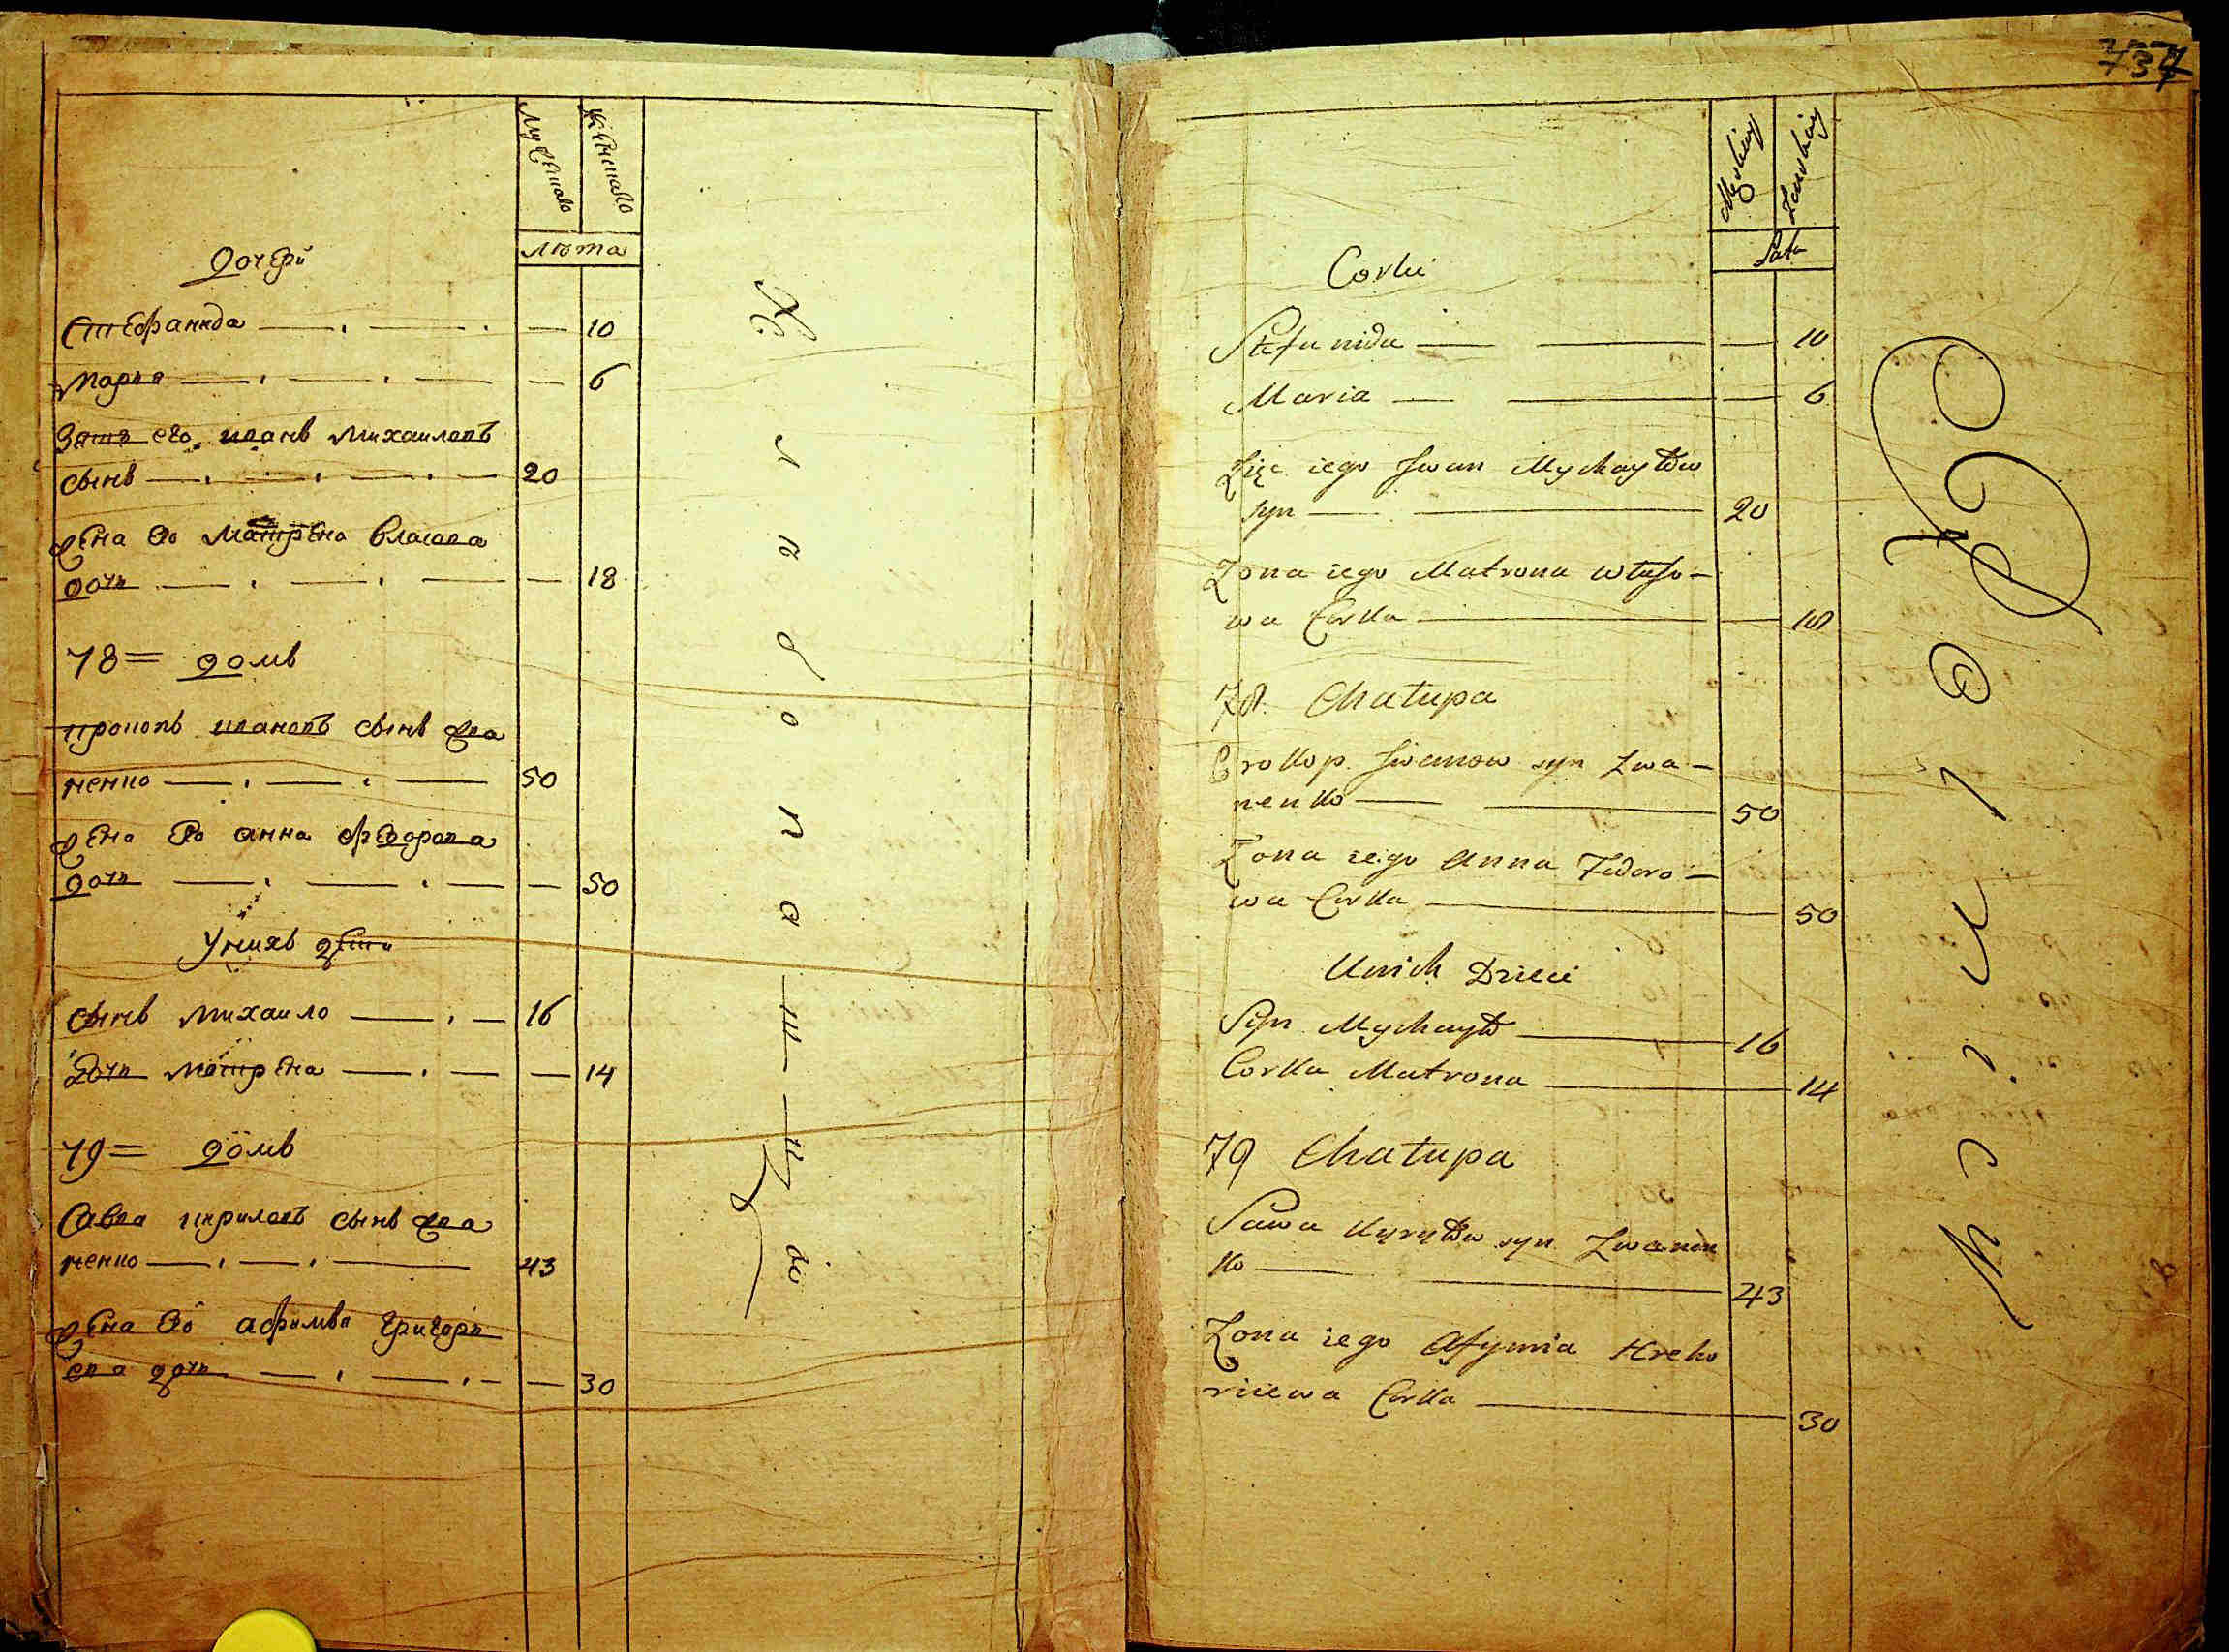 Мужеска
Женска
лѣта
Дочери
Стефанида — — — 10
марья — — — — 6
Зять его иванъ михаиловъ
сынъ — — — — 20
жена его матрена власова
дочь — — — — 18
78= домъ
прокопъ ивановъ сынъ жва
ненко — — — 50
жена его анна федорова
дочь — — — — 50
У нихъ дети
сынъ михаило — — 16
дочь матрена — — — 14
79= домъ
Савва кириловъ сынъ жва
ненко — — — 43
жена его афимья григорь
ева дочь — — — — 30
737
Męskiey
Zenskiey
Lata
Corki
Stefanida — — — 10
Maria — — — 6
Zięc iego Jwan Mychayłow
syn — — 20
Zona iego Matrona Właso-
wa Corka — — 18
78. Chałupa
Prokop Jwanow syn Zwa-
nenko — — 50
Zona iego Anna Fedoro-
wa Corka — — 50
U nich Dzieci
Syn Mychayło — 16
Corka Matrona — 14
79 Chałupa
Sawa Kyryłow syn Zwanen
ko — — 43
Zona iego Afymia Hreho
riewa Corka — 30